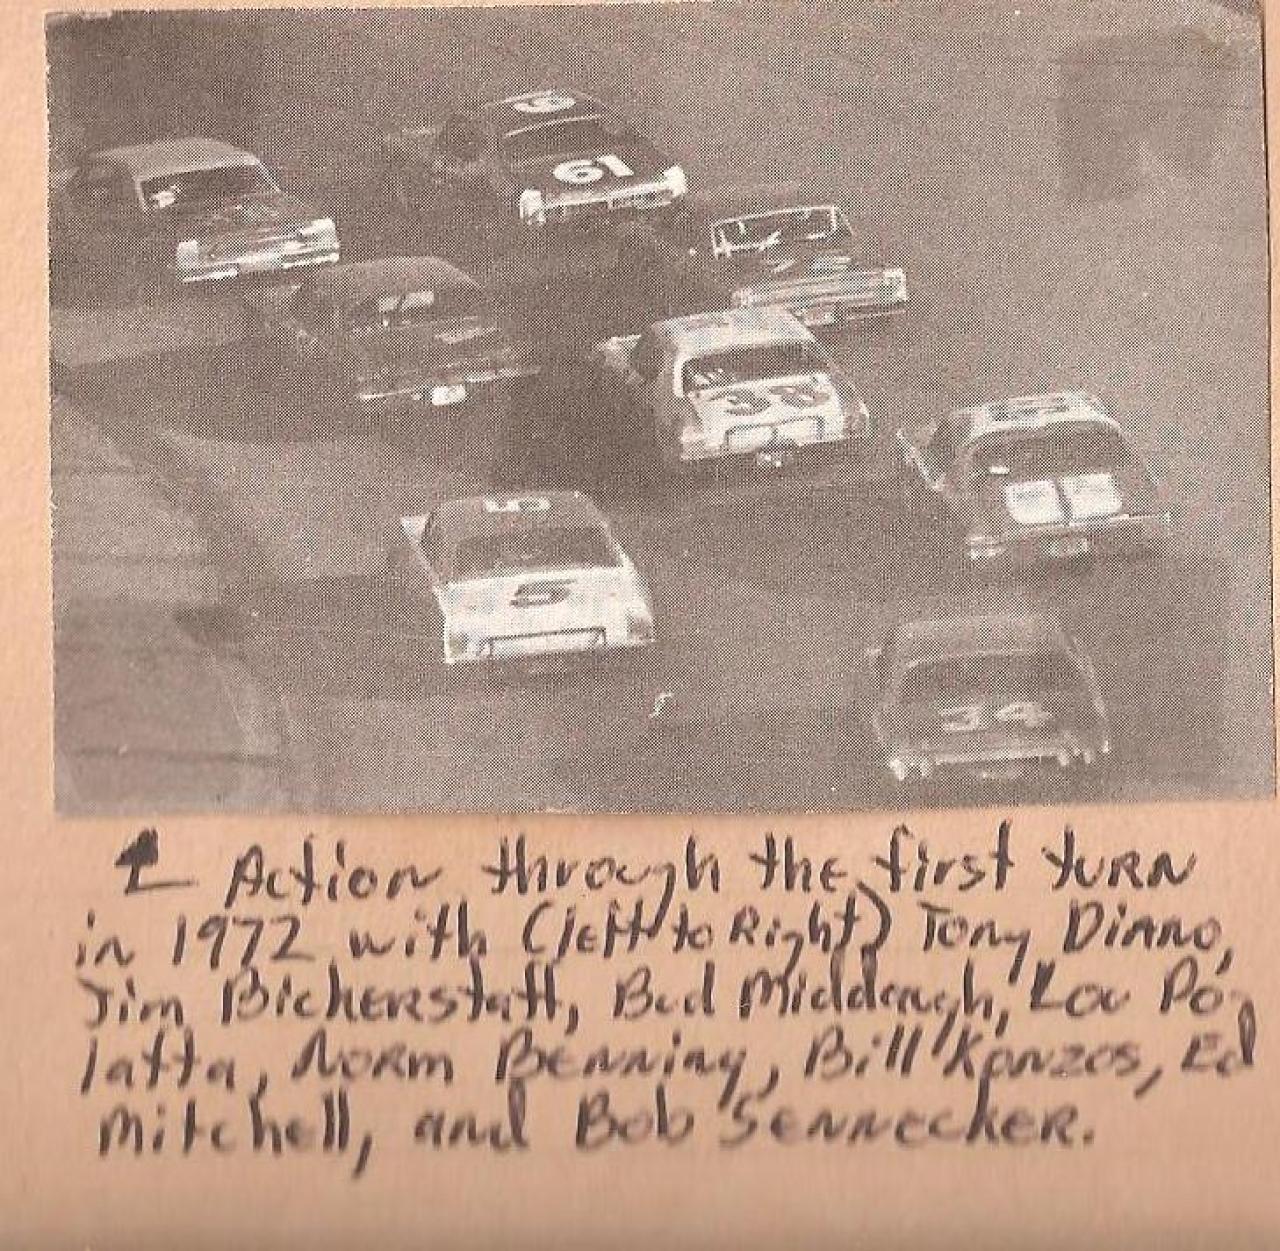 61
38
5
5
34
Action through the first turn
in 1972 with (left to Right) Tony Diano,
Jim Bickerstaff, Bud Middaugh, Lou Po-
latta, Norm Benning, Bill Konzos, Ed
Mitchell, and Bob Sennecker.